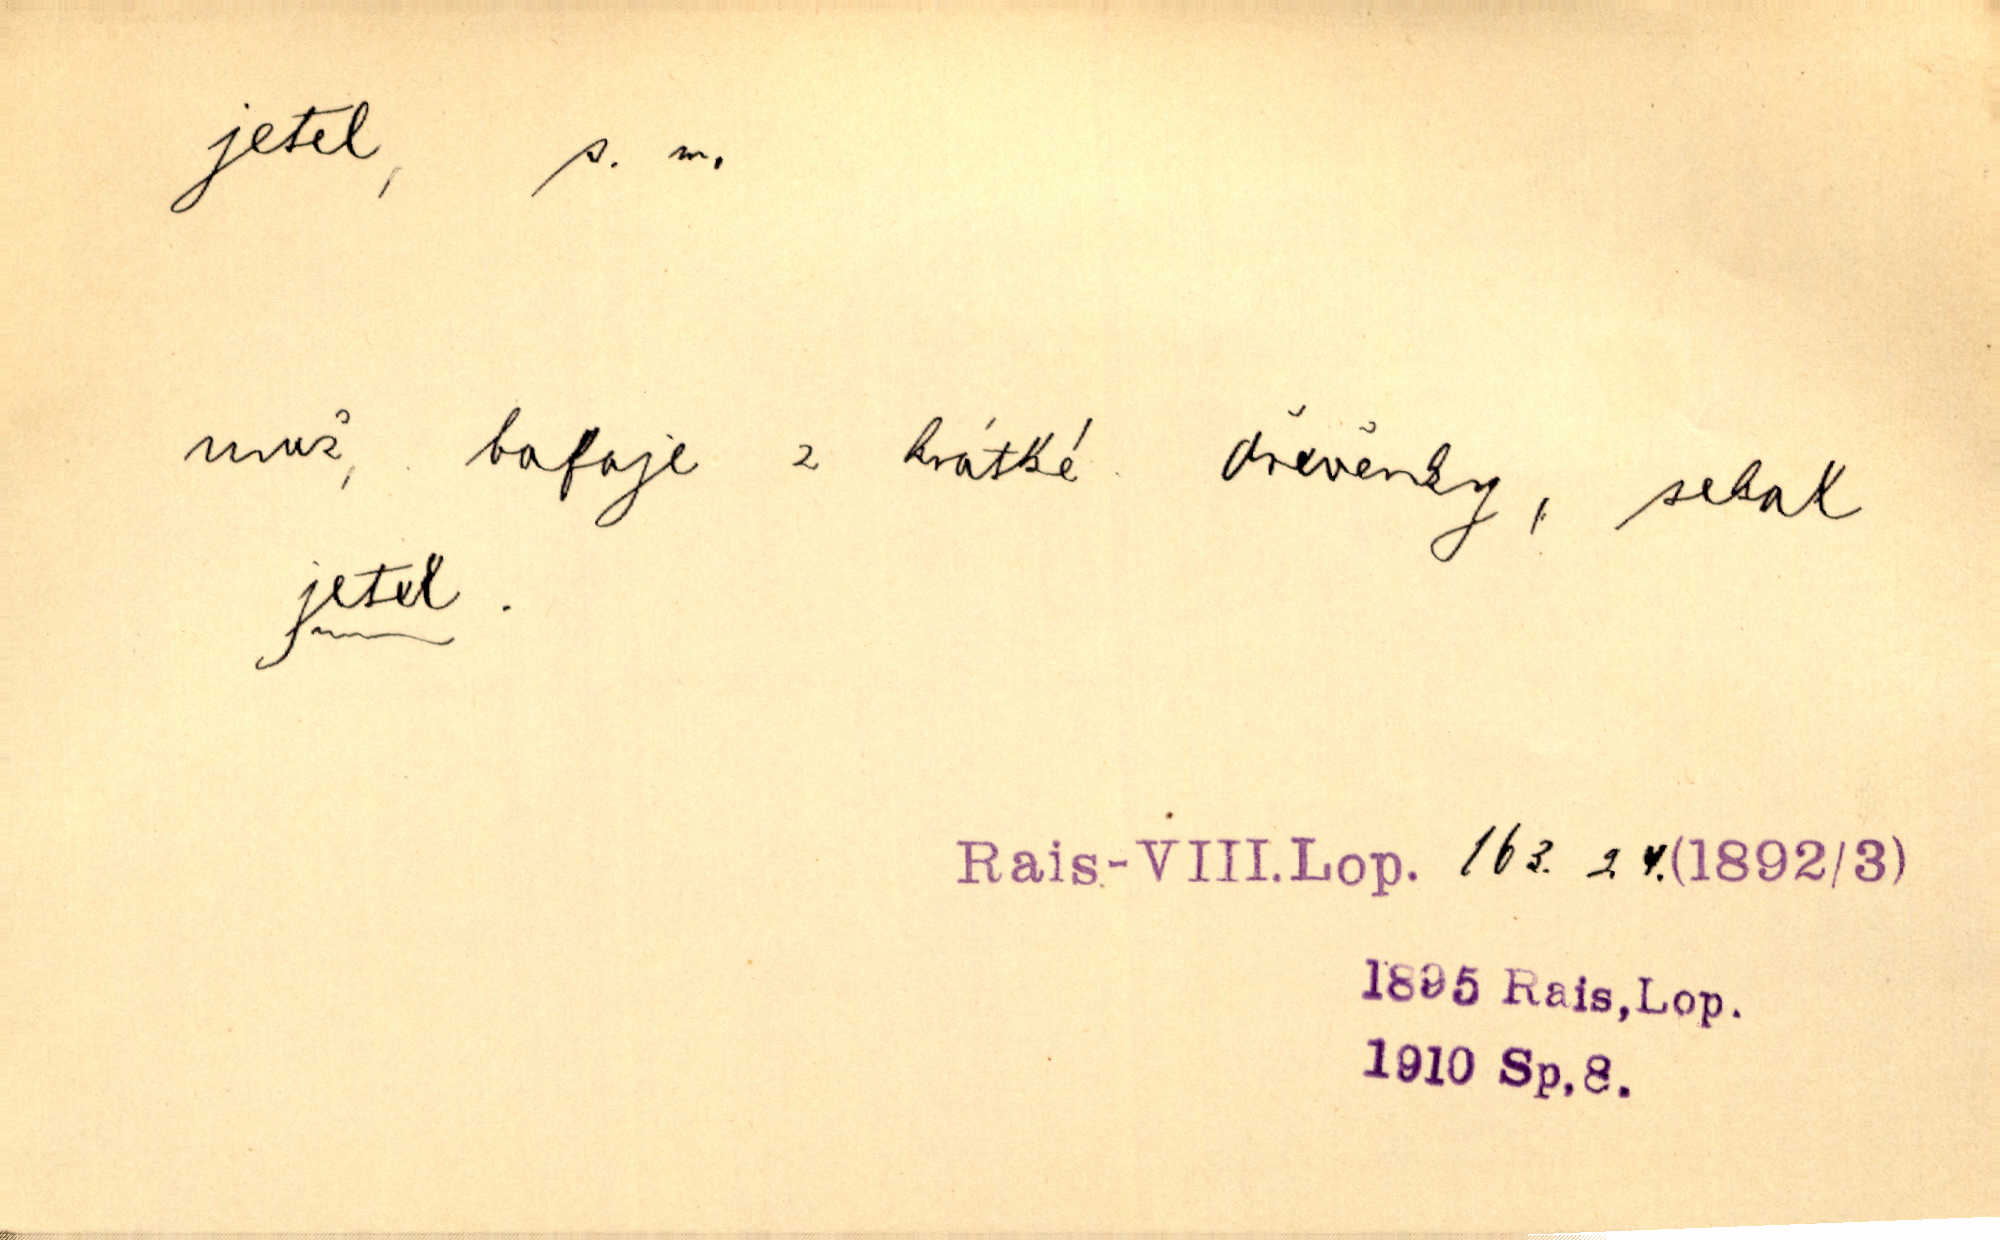 jetel, s. m.
muž, bafaje z krátké dřevěnky, sekal
jetel.
Rais-VIII.Lop. 163. 24.(1892/3)
1895 Rais,Lop.
1910 Sp.8.